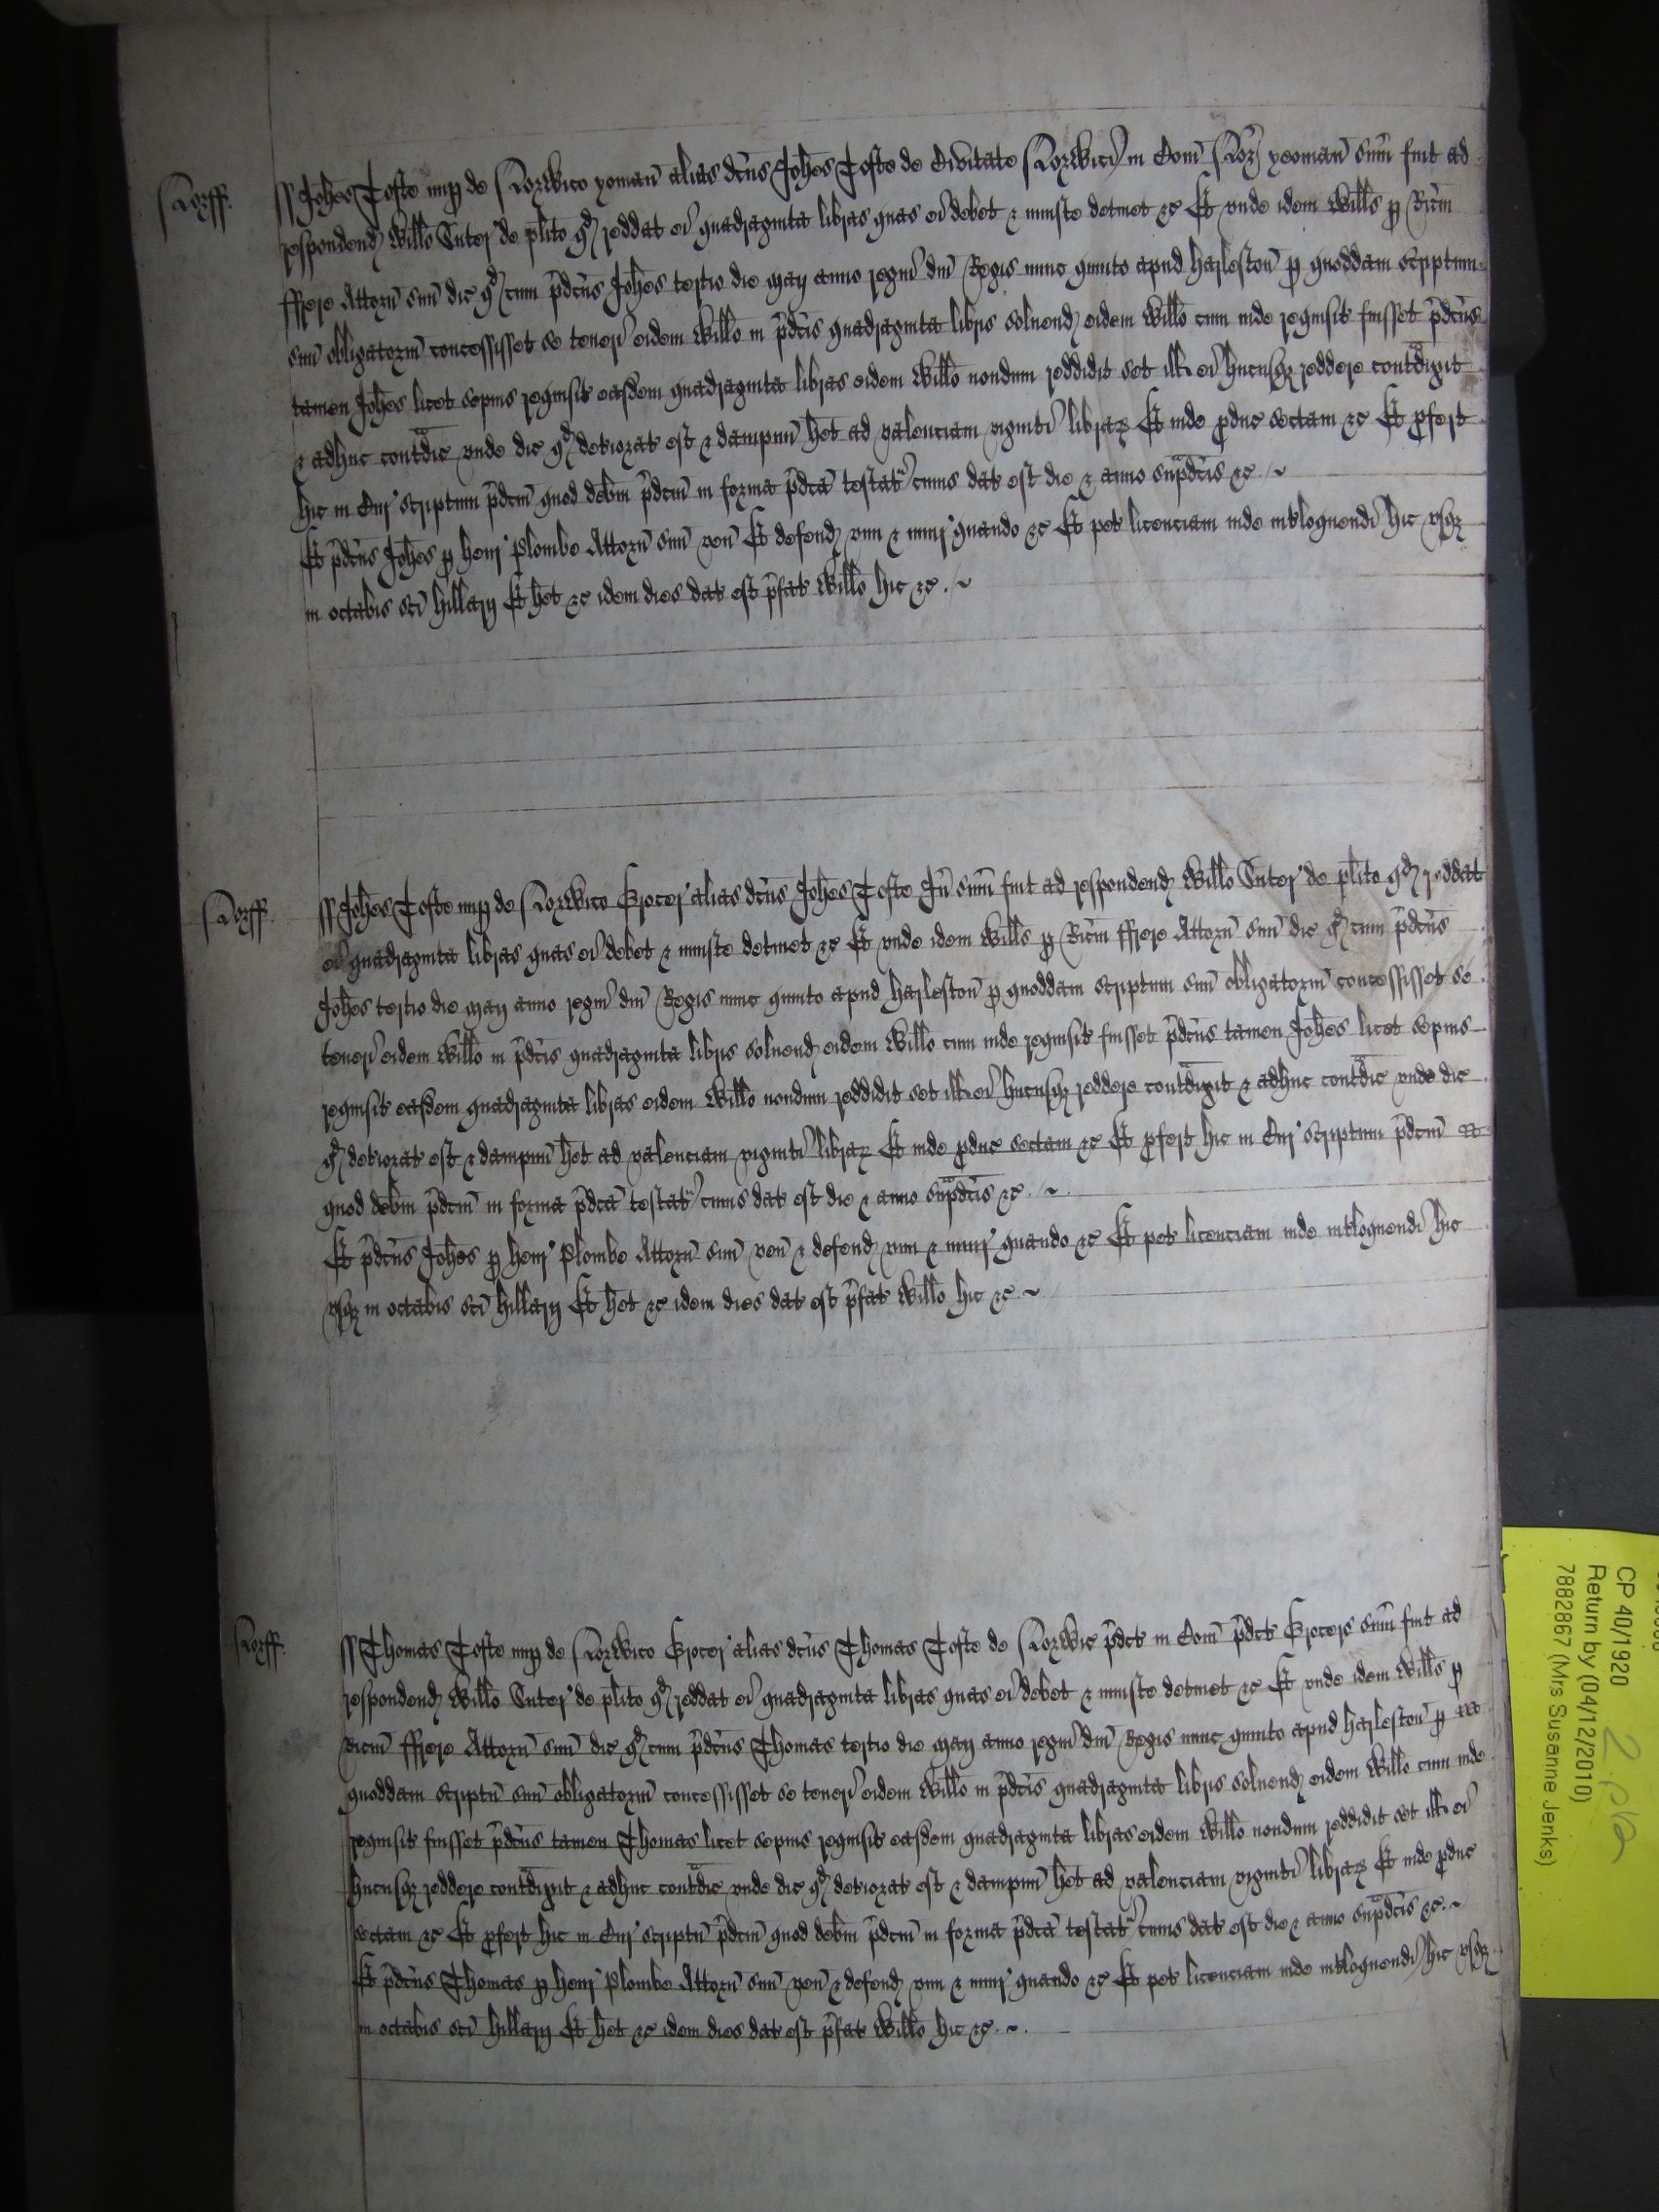 Norff. ss Joh̄es Tofte nup̱ de Norwico yoman̄ alias dc̄us Joh̄es Tofte de Civitate Norwici in Com̄ Norff yeoman̄ sum̄ fuit ad
respondend Will̄o Suter de pl̄ito qd reddat ei quadraginta libras quas ei debet & iniuste detinet &c Et unde idem Will̄s p̱ Ric̄m
ffrere Attorn̄ suū dic qd cum p̄dc̄us Joh̄es tertio die Maij anno regni dn̄i Regis nunc quinto apud Harleston̄ p̱ quoddam scriptum
suū obligatoriū concessisset se teneri eidem Will̄o in p̄dc̄is quadraginta libris solvend eidem Will̄o cum inde requisit fuisset p̄dc̄us
tamen Joh̄es licet sepius requisit easdem quadraginta libras eidem Will̄o nondum reddidit set ill ei hucusq reddere contradixit
& adhuc contradic unde dic qd deteriorat est & dampnū h̄et ad valenciam viginti librar Et inde p̱duc sectam &c Et p̱fert
hic in Cur scriptum p̄dc̄m quod deb̄m p̄dc̄m in forma p̄dc̄a testat cuius dat est die & anno sup̄dc̄is &c
Et p̄dc̄us Joh̄es p̱ Henr Plombe Attorn̄ suū ven̄ Et defend vim & iniur quando &c Et pet licenciam inde int̄loquendi hic usq
in octabis sc̄i Hillarij Et h̄et &c idem dies dat est p̄fat Will̄o hic &c
Norff. ss Joh̄es Tofte nup̱ de Norwico Grocer alias dc̄us Joh̄es Tofte Jun̄ sum̄ fuit ad respondend Will̄o Suter de pl̄ito qd reddat
ei quadraginta libras quas ei debet & iniuste detinet &c Et unde idem Will̄s p̱ Ric̄m ffrere Attorn̄ suū dic qd cum p̄dc̄us
Joh̄es tertio die Maij anno regni dn̄i Regis nunc quinto apud Harleston̄ p̱ quoddam scriptum suū obligatoriū concessisset se
teneri eidem Will̄o in p̄dc̄is quadraginta libris solvend eidem Will̄o cum inde requisit fuisset p̄dc̄us tamen Joh̄es licet sepius
requisit easdem quadraginta libras eidem Will̄o nondum reddidit set ill ei hucusq reddere contradixit & adhuc contradic unde dic
qd deteriorat est & dampnū h̄et ad valenciam viginti librar Et inde p̱duc sectam &c Et p̱fert hic in Cur scriptum p̄dc̄m
quod deb̄m p̄dc̄m in forma p̄dc̄a testat cuius dat est die & anno sup̄dc̄is &c
Et p̄dc̄us Joh̄es p̱ Henr Plombe Attorn̄ suū ven̄ & defend vim & iniur quando &c Et pet licenciam inde int̄loquendi hic
usq in octabis sc̄i Hillarij Et h̄et &c idem dies dat est p̄fat Will̄o hic &c
Norff. ss Thomas Tofte nup̱ de Norwico Grocer alias dc̄us Thomas Tofte de Norwic p̄dct in Com̄ p̄dct Grocer sum̄ fuit ad
respondend Will̄o Suter de pl̄ito qd reddat ei quadraginta libras quas ei debet & iniuste detinet &c Et unde idem Will̄s p̱
Ric̄m ffrere Attorn̄ suū dic qd cum p̄dc̄us Thomas tertio die Maij anno regni dn̄i Regis nunc quinto apud Harleston̄ p̱
quoddam scriptū suū obligatoriū concessisset se teneri eidem Will̄o in p̄dc̄is quadraginta libris solvend eidem Will̄o cum inde
requisit fuisset p̄dc̄us tamen Thomas licet sepius requisit easdem quadraginta libras eidem Will̄o nondum reddidit set ill ei
hucusq reddere contradixit & adhuc contradic unde dic qd deteriorat est & dampnū h̄et ad valenciam viginti librar Et inde p̱duc
sectam &c Et p̱fert hic in Cur scriptū p̄dc̄m quod deb̄m p̄dc̄m in forma p̄dc̄a testat cuius dat est die & anno sup̄dc̄is &c
Et p̄dc̄us Thomas p̱ Henr Plombe Attorn̄ suū ven̄ & defend vim & iniur quando &c Et pet licenciam inde int̄loquendi hic usq
in octabis sc̄i Hillarij Et h̄et &c idem dies dat est p̄fat Will̄o hic &c
CP 40/1920
Return by (04/12/2010)
7882867 (Mrs Susanne Jenks)